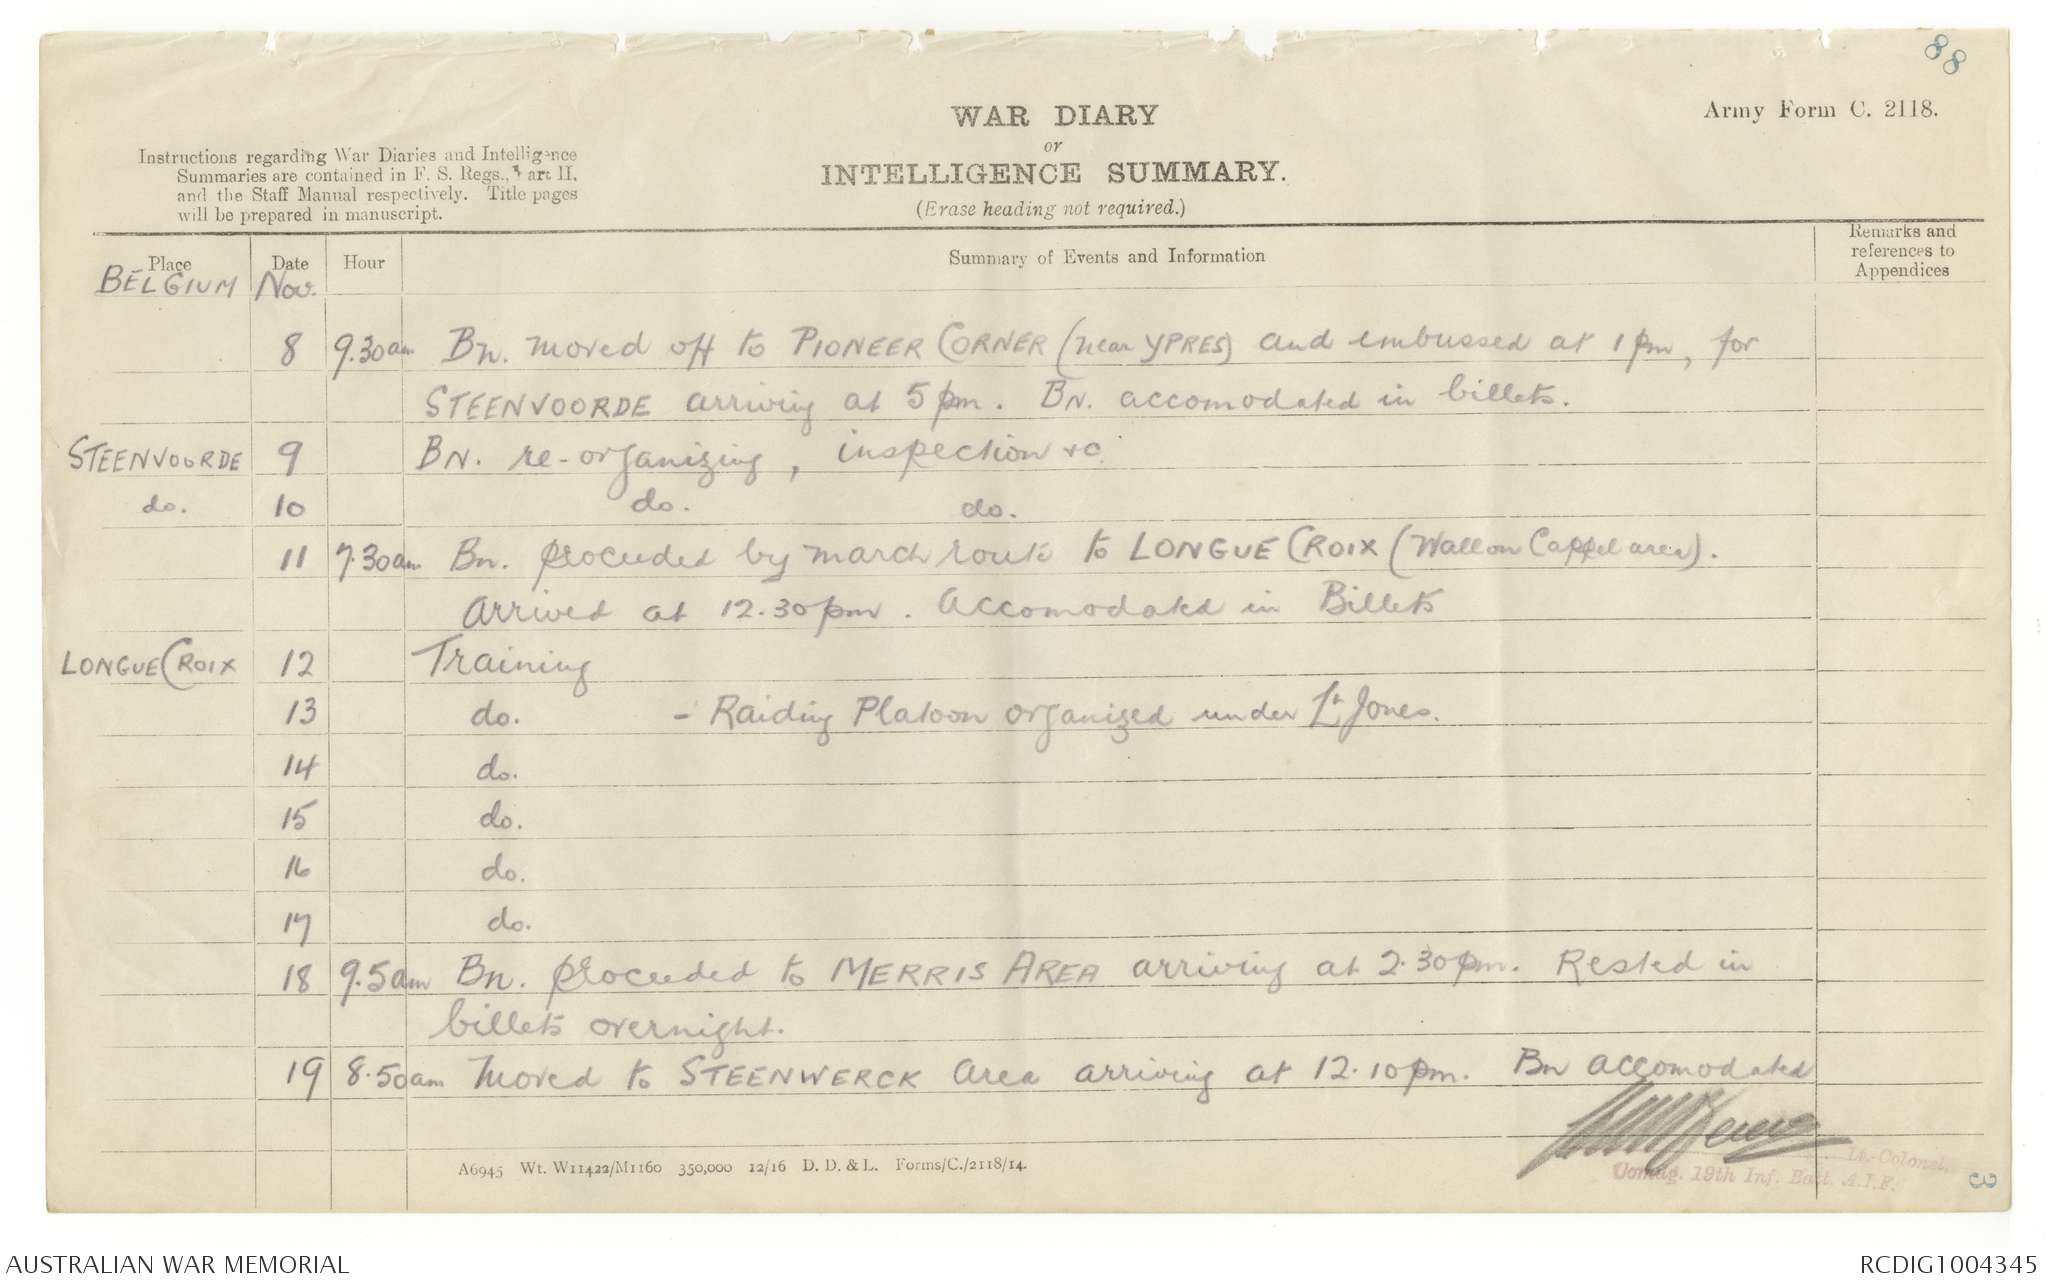 88
Army Form C. 2118.
WAR DIARY
or
INTELLIGENCE SUMMARY.
(Erase heading not required.)
Instructions regarding War Diaries and Intelligence
Summaries are contained in F. S. Regs., Part II.
and the Staff Manual respectively. Title pages
will be prepared in manuscript.
Place Date Hour Summary of Events and Information Remarks and references to Appendices
BELGIUM Nov.
8 9.30am Bn. moved off to PIONEER CORNER (near YPRES) and embussed at 1pm, for
STEENVOORDE arriving at 5pm. BN. accomodated in billets.
STEENVOORDE 9 BN. re-organizing, inspection &c.
do. 10 do. do.
11 7.30am Bn. proceeded by march route to LONGUE CROIX (Wallon Cappel area).
Arrived at 12.30pm. Accomodated in Billets
LONGUE CROIX 12 Training
13 do. - Raiding Platoon organized under Lt Jones.
14 do.
15 do.
16 do.
17 do.
18 9.5am Bn. proceeded to MERRIS AREA arriving at 2.30pm. Rested in
billets overnight.
19 8.50am Moved to STEENWERCK Area arriving at 12.10pm. Bn accomodated
Lt.-Colonel.
Comdg. 19th Inf. Batt. A.I.F.
3
A6945 Wt. W11422/M1160 350,000 12/16 D. D. & L. Forms/C./2118/14.
AUSTRALIAN WAR MEMORIAL
RCDIG1004345